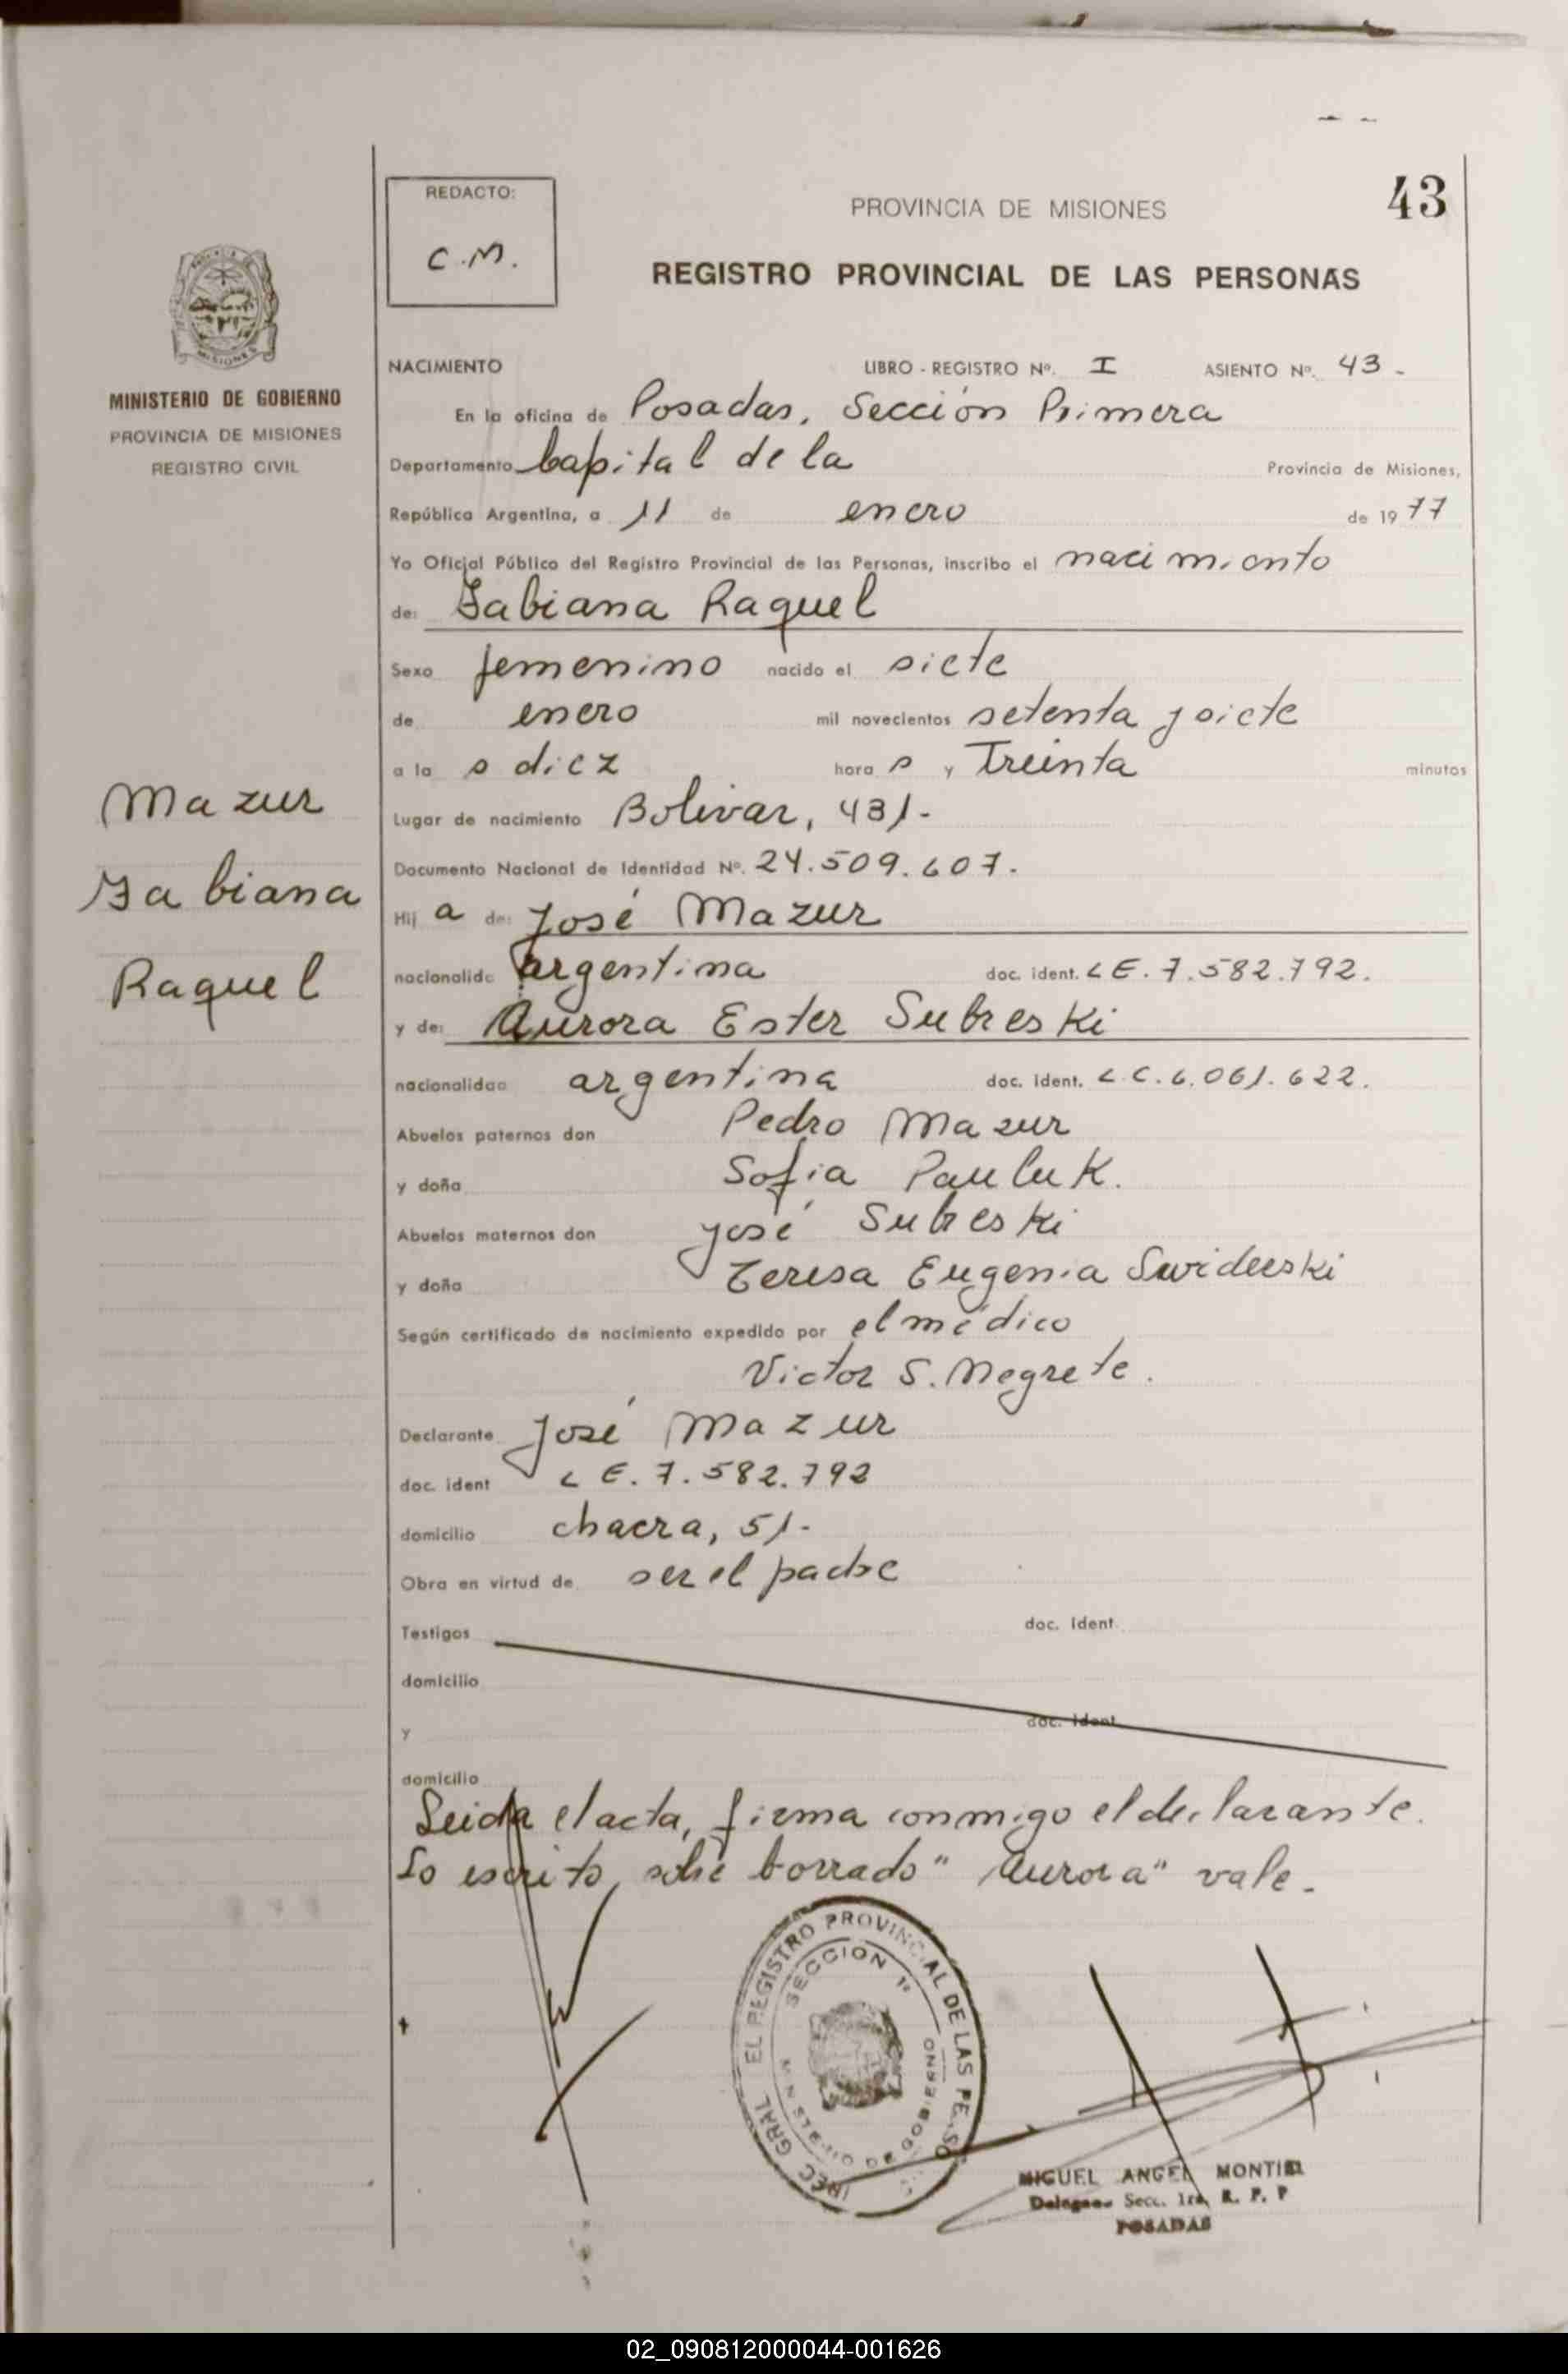 43
REDACTO:
C.M.
PROVINCIA DE MISIONES
REGISTRO PROVINCIAL DE LAS PERSONAS
MISIONES
MINISTERIO DE GOBIERNO
PROVINCIA DE MISIONES
REGISTRO CIVIL
NACIMIENTO LIBRO - REGISTRO Nº. I ASIENTO Nº. 43 -
En la oficina de Posadas, Sección Primera
Departamento Capital de la Provincia de Misiones,
República Argentina, a 11 de enero de 19 77
Yo Oficial Público del Registro Provincial de las Personas, inscribo el nacimiento
de: Fabiana Raquel
Sexo femenino nacido el siete
de enero mil novecientos setenta y siete
a la s diez hora s y Treinta minutos
Lugar de nacimiento Bolivar, 431.-
Documento Nacional de Identidad Nº. 24.509.607.
Hij a de: José Mazur
nacionalida argentina doc. ident. L E. 7.582.792.
y de: Aurora Ester Subreski
nacionalidad argentina doc. ident. L.C. 6.061.622.
Abuelos paternos don Pedro Mazur
y doña Sofia Pauluk.
Abuelos maternos don José Subreski
y doña Teresa Eugenia Swiderski
Según certificado de nacimiento expedido por el médico
Victor S. Negrete.
Declarante José Mazur
doc. ident L E. 7.582.792
domicilio chacra, 51.-
Obra en virtud de ser el padre
Testigos doc. ident.
domicilio
y doc. ident.
domicilio
Leida el acta, firma conmigo el declarante.
Lo escrito sobre borrado "Aurora" vale.-
Mazur
Fabiana
Raquel
GRAL EL REGISTRO PROVINCIAL DE LAS
SECCION 1ª
DE GOBIERNO
MIGUEL ANGEL MONTIEL
Secc. 1ra. R. P. P
POSADAS
02_090812000044-001626